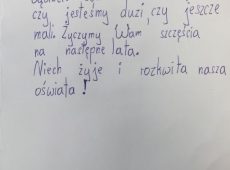 czy jesteśmy duzi, czy jeszcze
mali. Życzymy Wam szczęścia
na następne lata.
Niech żyje i rozkwita nasza
oświata!